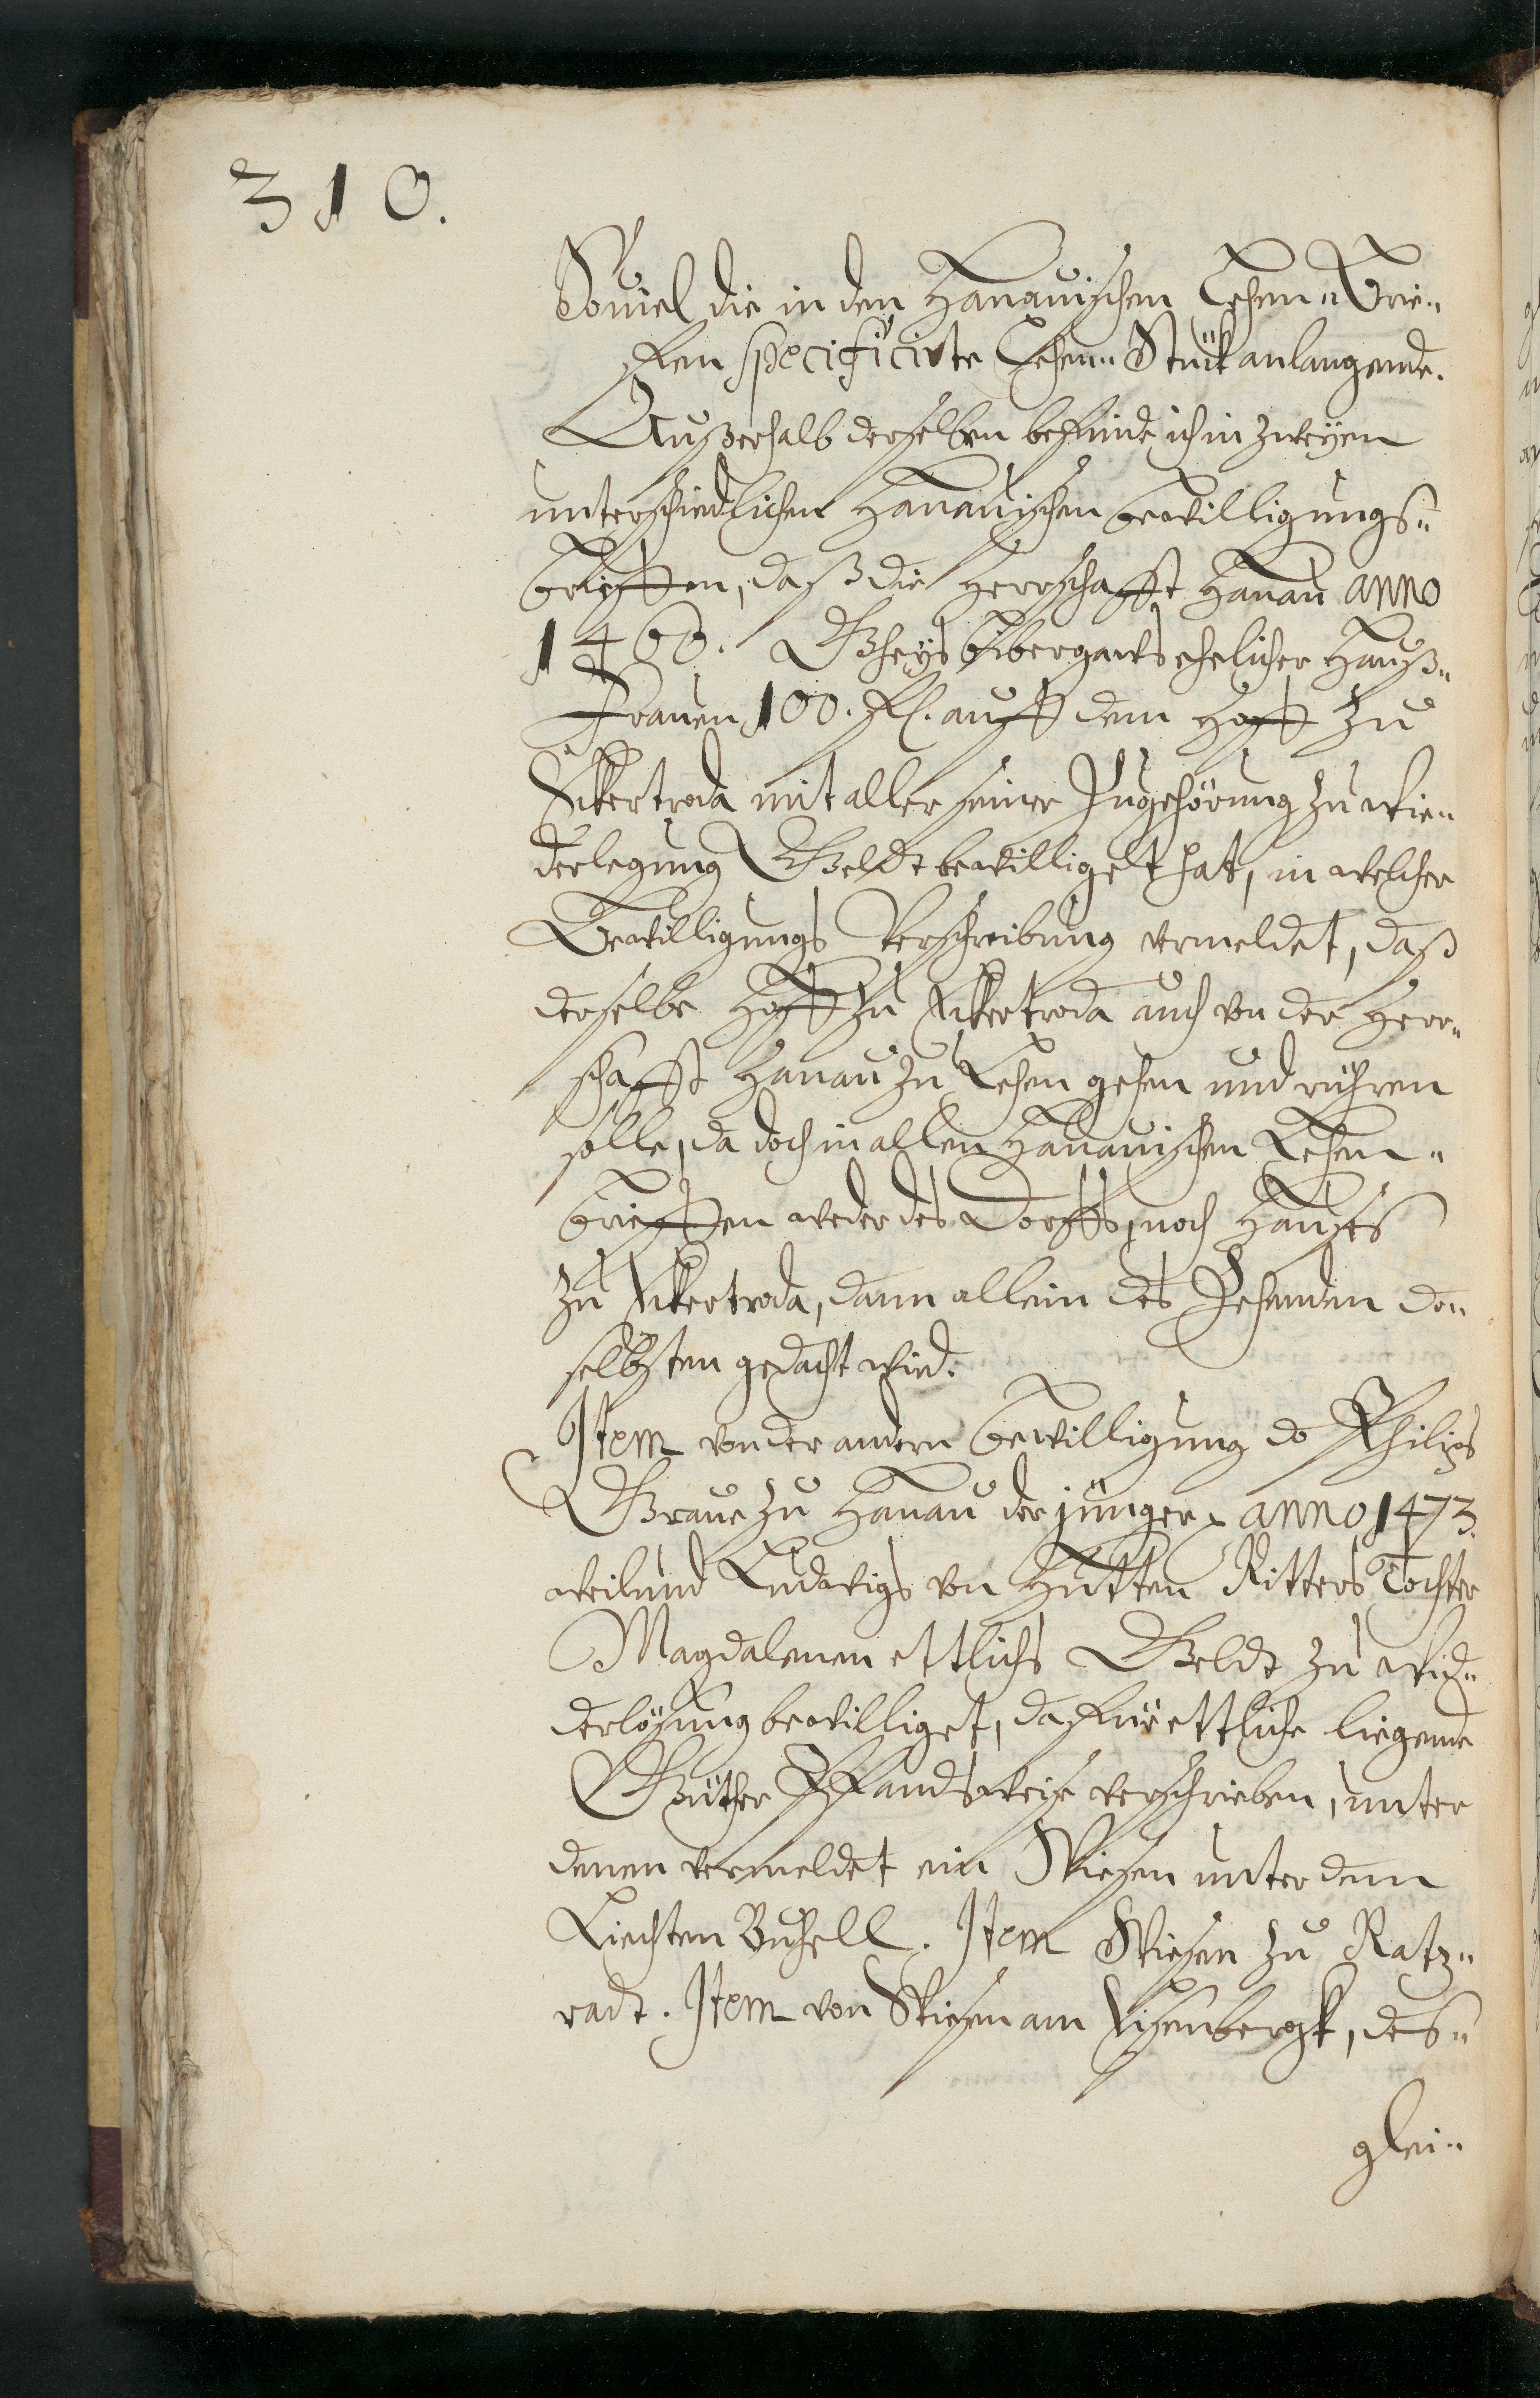 310.
Souiel die in den Hanauischen Lehen" Brie"
fen specificirte Lehen" Stück anlangende.
Außerhalb derselben befinde ich in zweÿen
unterschiedlichen Hanauischen bewilligungs"
brieffen, daß die Herrschafft Hanau anno
1466. ehelicher Hauß"
Frauen 100. fl. auff dem Hoff zu
mit aller seiner Zugehörung zu wie"
derlegung Geldt bewilliget hat, in welcher
Bewilligungs Verschreibung vermeldet, daß
derselbe Hoff zu auch von der Herr"
schafft Hanau zu Lehen gehen und rühren
solle, da doch in allen Hanauischen Lehen"
brieffen weder des Dorffs, noch Haußes
zu dann allein des Zehenden da"
selbsten gedacht wird.
Item von der andern bewilligung do Philips
Graue zu Hanau der jünger anno 1473.
weilund Ludwigs von Hutten Ritters Tochter
Magdalenen ettlichs Geldt zu wid"
derlösung bewilliget, dafür ettliche liegende
Güther Pfandsweise verschrieben, unter
denen vermeldet ein Wiesen unter dem
Liechten Buhell. Item Wiesen zu Ratz"
radt. Item von Wiesen am Eisenbergk, des"
glei"